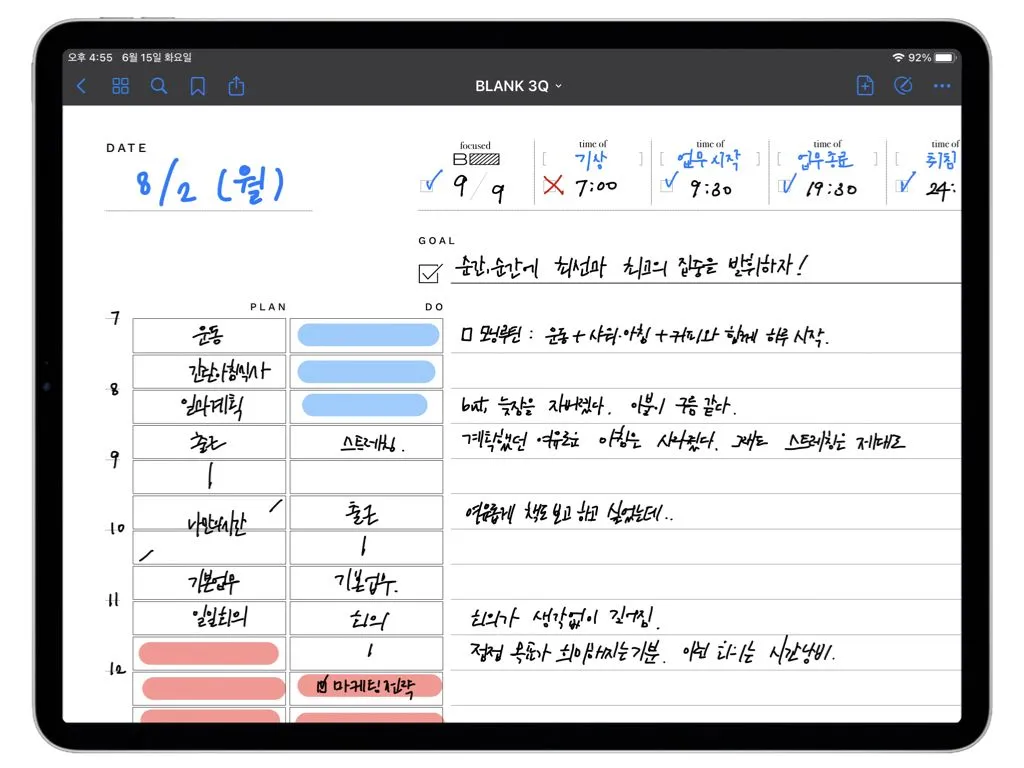 오후 4:55 6월 15일 화요일 92%
BLANK 3Q
DATE
8/2 (월)
focused
9/9
time of
기상
7:00
time of
업무시작
9:30
time of
업무종료
19:30
time of
취침
24:
GOAL
순간,순간에 최선과 최고의 집중을 발휘하자!
PLAN DO
7
운동
□ 모닝루틴 : 운동+샤워·아침+커피와 함께 하루 시작.
간단아침식사
8
일과계획
but, 늦잠을 자버렸다. 이불이 구름 같다.
출근 스트레칭.
계획했던 여유로운 아침은 사라졌다. 그래도 스트레칭은 제대로
9
나만의시간 출근
여유롭게 책도 보고 하고 싶었는데..
10
기본업무 기본업무.
11
일일회의 회의
회의가 생각없이 길어짐.
점점 목표가 희미해지는기분. 이런 회의는 시간낭비.
12
마케팅전략